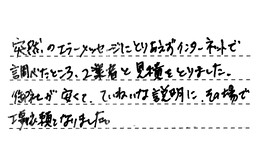 突然のエラーメッセージにとりあえずインターネットで
調べたところ、2業者と見積をとりました。
御社が安くて、ていねいな説明に、その場で
工事依頼となりました。